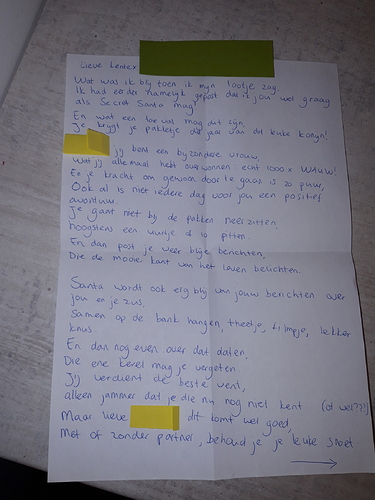 Lieve Lenter
Wat was ik blij toen ik mijn lootje zag.
Ik had eerder namelijk gepost dat ik jou wel graag
als Secret Santa mag
En wat een toeval mag dit zijn
Je krijgt je pakketje dit jaar van dit leuke konijn!
jij bent een bijzondere vrouw,
Wat jij allemaal hebt overwonnen echt 1000x WAUW!
En je kracht om gewoon door te gaan is zo puur,
Ook al is niet iedere dag voor jou een positief
avontuur.
Je gaat niet bij de pakken neerzitten
hoogstens een uurtje of 10 pitten
En dan post je weer blije berichten,
Die de mooie kant van het leven belichten.
Santa wordt ook erg blij van jouw berichten over
jou en je zus.
Samen op de bank hangen, theetje, filmpje, lekker
knus
En dan nog even over dat daten,
Die ene kerel mag je vergeten
Jij verdient de beste vent,
alleen jammer dat je die nu nog niet kent (of wel???)
Maar lieve dit komt wel goed,
Met of zonder partner, behoud je je leuke snoet